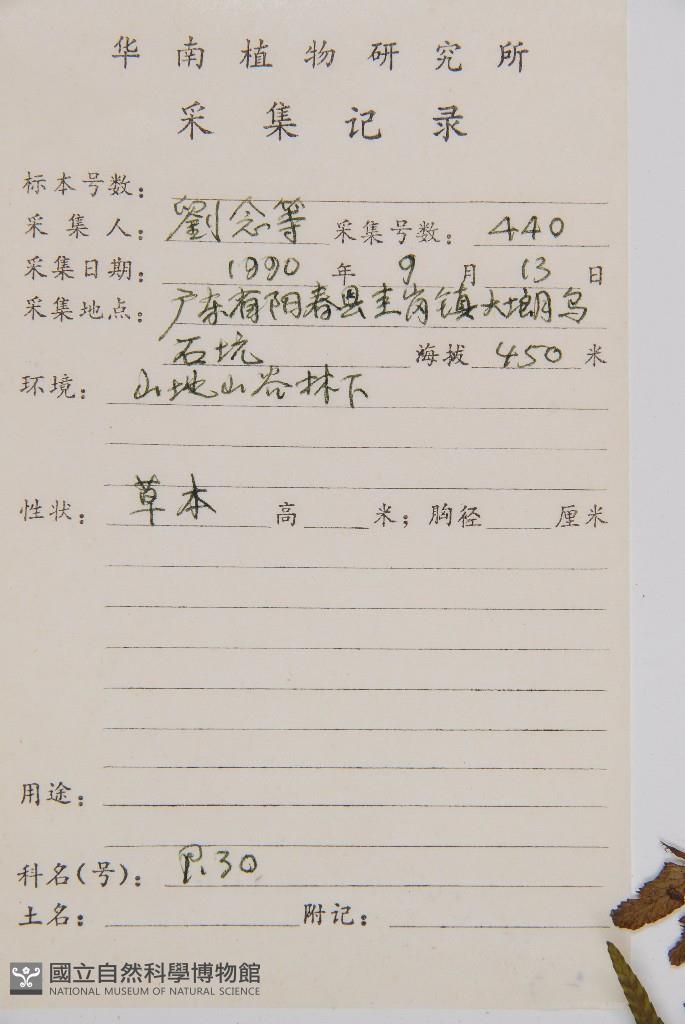 华南植物研究所
采集记录
标本号数：
采集人：劉念等 采集号数：440
采集日期：1990年9月13日
采集地点：广东省阳春县圭岗镇大塱乌
石坑 海拔450米
环境：山地山谷林下
性状：草本 高 米；胸径 厘米
用途：
科名(号)：P.30
土名： 附记：
國立自然科學博物館
NATIONAL MUSEUM OF NATURAL SCIENCE